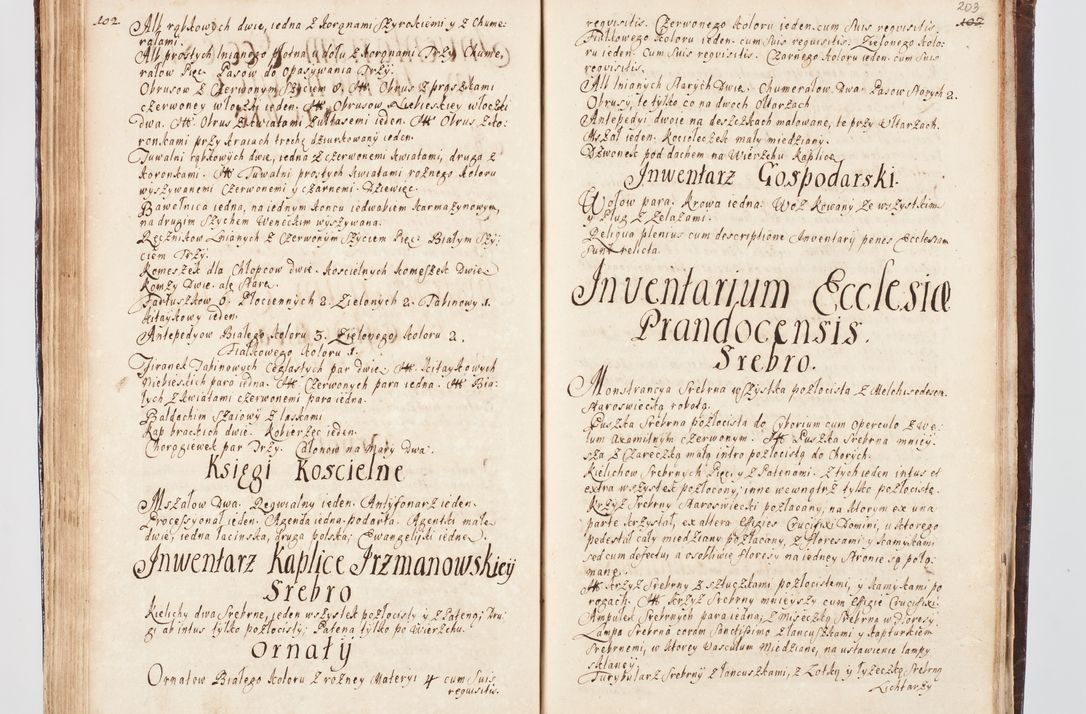 102.
Alb rąbkowych dwie, iedna z koronami szyrokiemi y z Chume,
ralami.
Alb prostych lnianego płotna u dołu z koronami Trzy. Chume,
ralow Pięc. Pasow do opasywania Trzy.
Obrusow z Czerwonym szyciem 6. Obrus z prązkami
czerwoney włoczki ieden. Obrusow z niebieskiey włoczki
dwa. Obrus z kwiatami z kutasemi ieden. Obrus z ko,
ronkami przy kraiach trochę dziurkowany ieden.
Tuwalni rąbkowych dwie, iedna z czerwonemi kwiatami, druga z
koronkami. Tuwalni prostych kwiatami roznego koloru
wyszywanemi czerwonemi y czarnemi. Dziewięc.
Bawełnica iedna, na iednym koncu iedwabiem karmazynowym,
na drugim szychem Weneckim wyszywana.
Ręcznikow Lnianych z Czerwonym szyciem Pięc. Białym szy,
ciem Trzy.
Komeszek dla Chłopcow dwie. Koscielnych Komeszek Dwie
Komzy Dwie. ale stare.
Fartuszkow 6. Płociennych 2. Zielonych 2. Tabinowy 1.
Kitaykowy ieden.
Antepedyow Białego koloru 3. Zielonego koloru 2.
Fiałkowego koloru 1.
Firanek Tabinowych Ceglastych par dwie. Kitaykowych
Niebieskich para iedna. Czerwonych para iedna. Bia,
łych z kwiatami czerwonemi para iedna.
Baldachim szaiowy z laskami
Kap brackich dwie. Kobierzec ieden.
Chorągiewek par Trzy. Całonow na Mary Dwa.
Księgi Koscielne
Mszałow Dwa. Regwialny ieden. Antyfonarz ieden.
Processyonał ieden. Agenda iedna podarta. Agentki małe
dwie, iedna łacinska, druga polska, Ewangeliyki iedne.
Inwentarz Kaplice Trzmanowskiey
Srebro
Kielichy dwa Srebrne, ieden wszystek pozłocisty y z Pateną; Dru,
gi ab intus tylko pozłocisty; Patena tylko po Wierzchu.
Ornaty
Ornatow Białego koloru z rozney Materyi 4 cum suis
requisitis.
203
requisitis. Czerwonego koloru ieden. cum suis requisitis.
Fiałkowego koloru ieden. cum suis requisitis. Zielonego kolo,
ru ieden. cum suis requisitis. Czarnego koloru ieden. cum suis
requisitis.
Alb lnianych starych Dwie. Chumerałow Dwa. Pasow starych 2.
Obrusy, te tylko co na dwoch Ołtarzach
Antepedya dwoie na deszczkach malowane, te przy Ołtarzach.
Mszał ieden. Kociołeczek mały miedziany.
Dzwonek pod dachem na Wierzchu Kaplice
Inwentarz Gospodarski.
Wołow para. Krowa iedna. Woz kowany ze wszystkim
y Pług z żelazami.
Reliqua plenius cum descriptione Inventarij penes Ecclesiam
sunt relicta.
Inventarium Ecclesiæ
Prandocensis.
Srebro.
Monstrancya Srebrna wszystka pozłocista z Melchisedesem
staroswiecką robotą.
Puszka Srebrna pozłocista do Cyborium cum operculo z We,
lum axamitnym czerwonym. Puszka Srebrna mniey,
sza z czareczką małą intro pozłocistą do Chorych.
Kielichow Srebrnych Pięc, y z Patenami. z tych ieden intus et
extra wszystek pozłocony, inne wewnątrz tylko pozłociste.
Krzyż Srebrny staroswiecki pozłacany, na ktorym ex una
parte krzyształ, ex altera effigies Crucifixi Domini, u ktorego
pedestał cały miedziany pozłacany, z floresami y kamykami
sed cum defectu, a osobliwie floresy na iedney stronie są poła,
mane.
Krzyż Srebrny z sztuczkami pozłocistemi, y kamykami po
rogach. Krzyż Srebrny mnieyszy cum effigie Crucifixi.
Ampułek Srebrnych para iedna, z Miseczką Srebrną w floresy.
Lampa Srebrna coram Sanctissimo z łancuszkami y kapturkiem
Srebrnemi, w ktorey Vasculum Miedziane, na ustawienie lampy
sklaney.
Turybularz Srebrny z łancuszkami, z Łotką y łyżeczką Srebrną
Lichtarzy